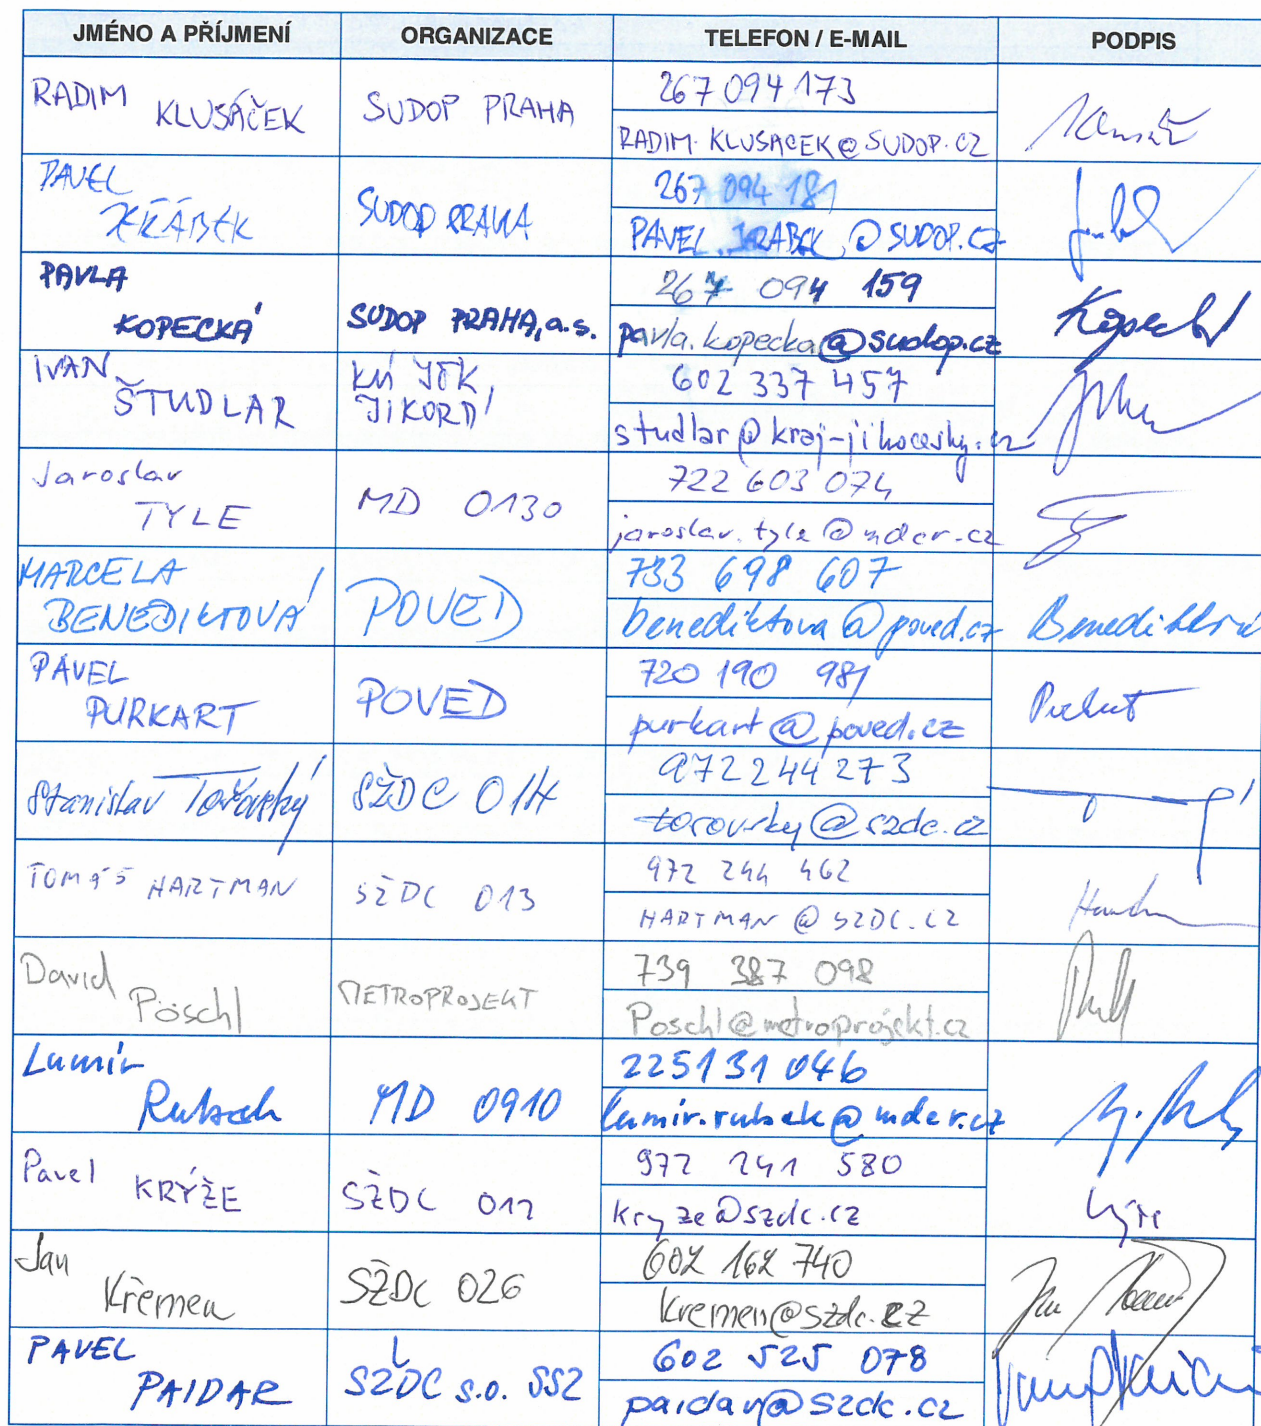 JMÉNO A PŘÍJMENÍ ORGANIZACE TELEFON / E-MAIL PODPIS
RADIM KLUSÁČEK SUDOP PRAHA 267 094 173
RADIM.KLUSACEK@SUDOP.CZ
PAVEL SUDOP PRAHA 267 094 181
PAVEL.JRABEK@SUDOP.CZ
PAVLA KOPECKÁ SUDOP PRAHA, a.s. 267 094 159
pavla.kopecka@sudop.cz
IVAN ŠTUDLAR KÚ JČK, JIKORD 602 337 457
studlar@kraj-jihocesky.cz
Jaroslav TYLE MD 0130 722 603 074
jaroslav.tyle@mdcr.cz
MARCELA BENEDIKTOVÁ POVED 733 698 607
benediktova@poved.cz Benediktová
PAVEL PURKART POVED 720 190 981
purkart@poved.cz
Stanislav Tořovský SŽDC O14 972 244 273
torovsky@szdc.cz
TOMÁŠ HARTMAN SŽDC O13 972 244 462
HARTMAN@SZDC.CZ
David Pöschl METROPROJEKT 739 387 098
Poschl@metroprojekt.cz
Lumír Rubsek MD 0910 225131 046
lumir.rubek@mdcr.cz
Pavel KRÝŽE SŽDC O12 972 241 580
kryze@szdc.cz
Jan Křemen SŽDC O26 602 162 740
Kremen@szdc.cz
PAVEL PAIDAR SŽDC s.o. SSZ 602 525 078
paidar@szdc.cz